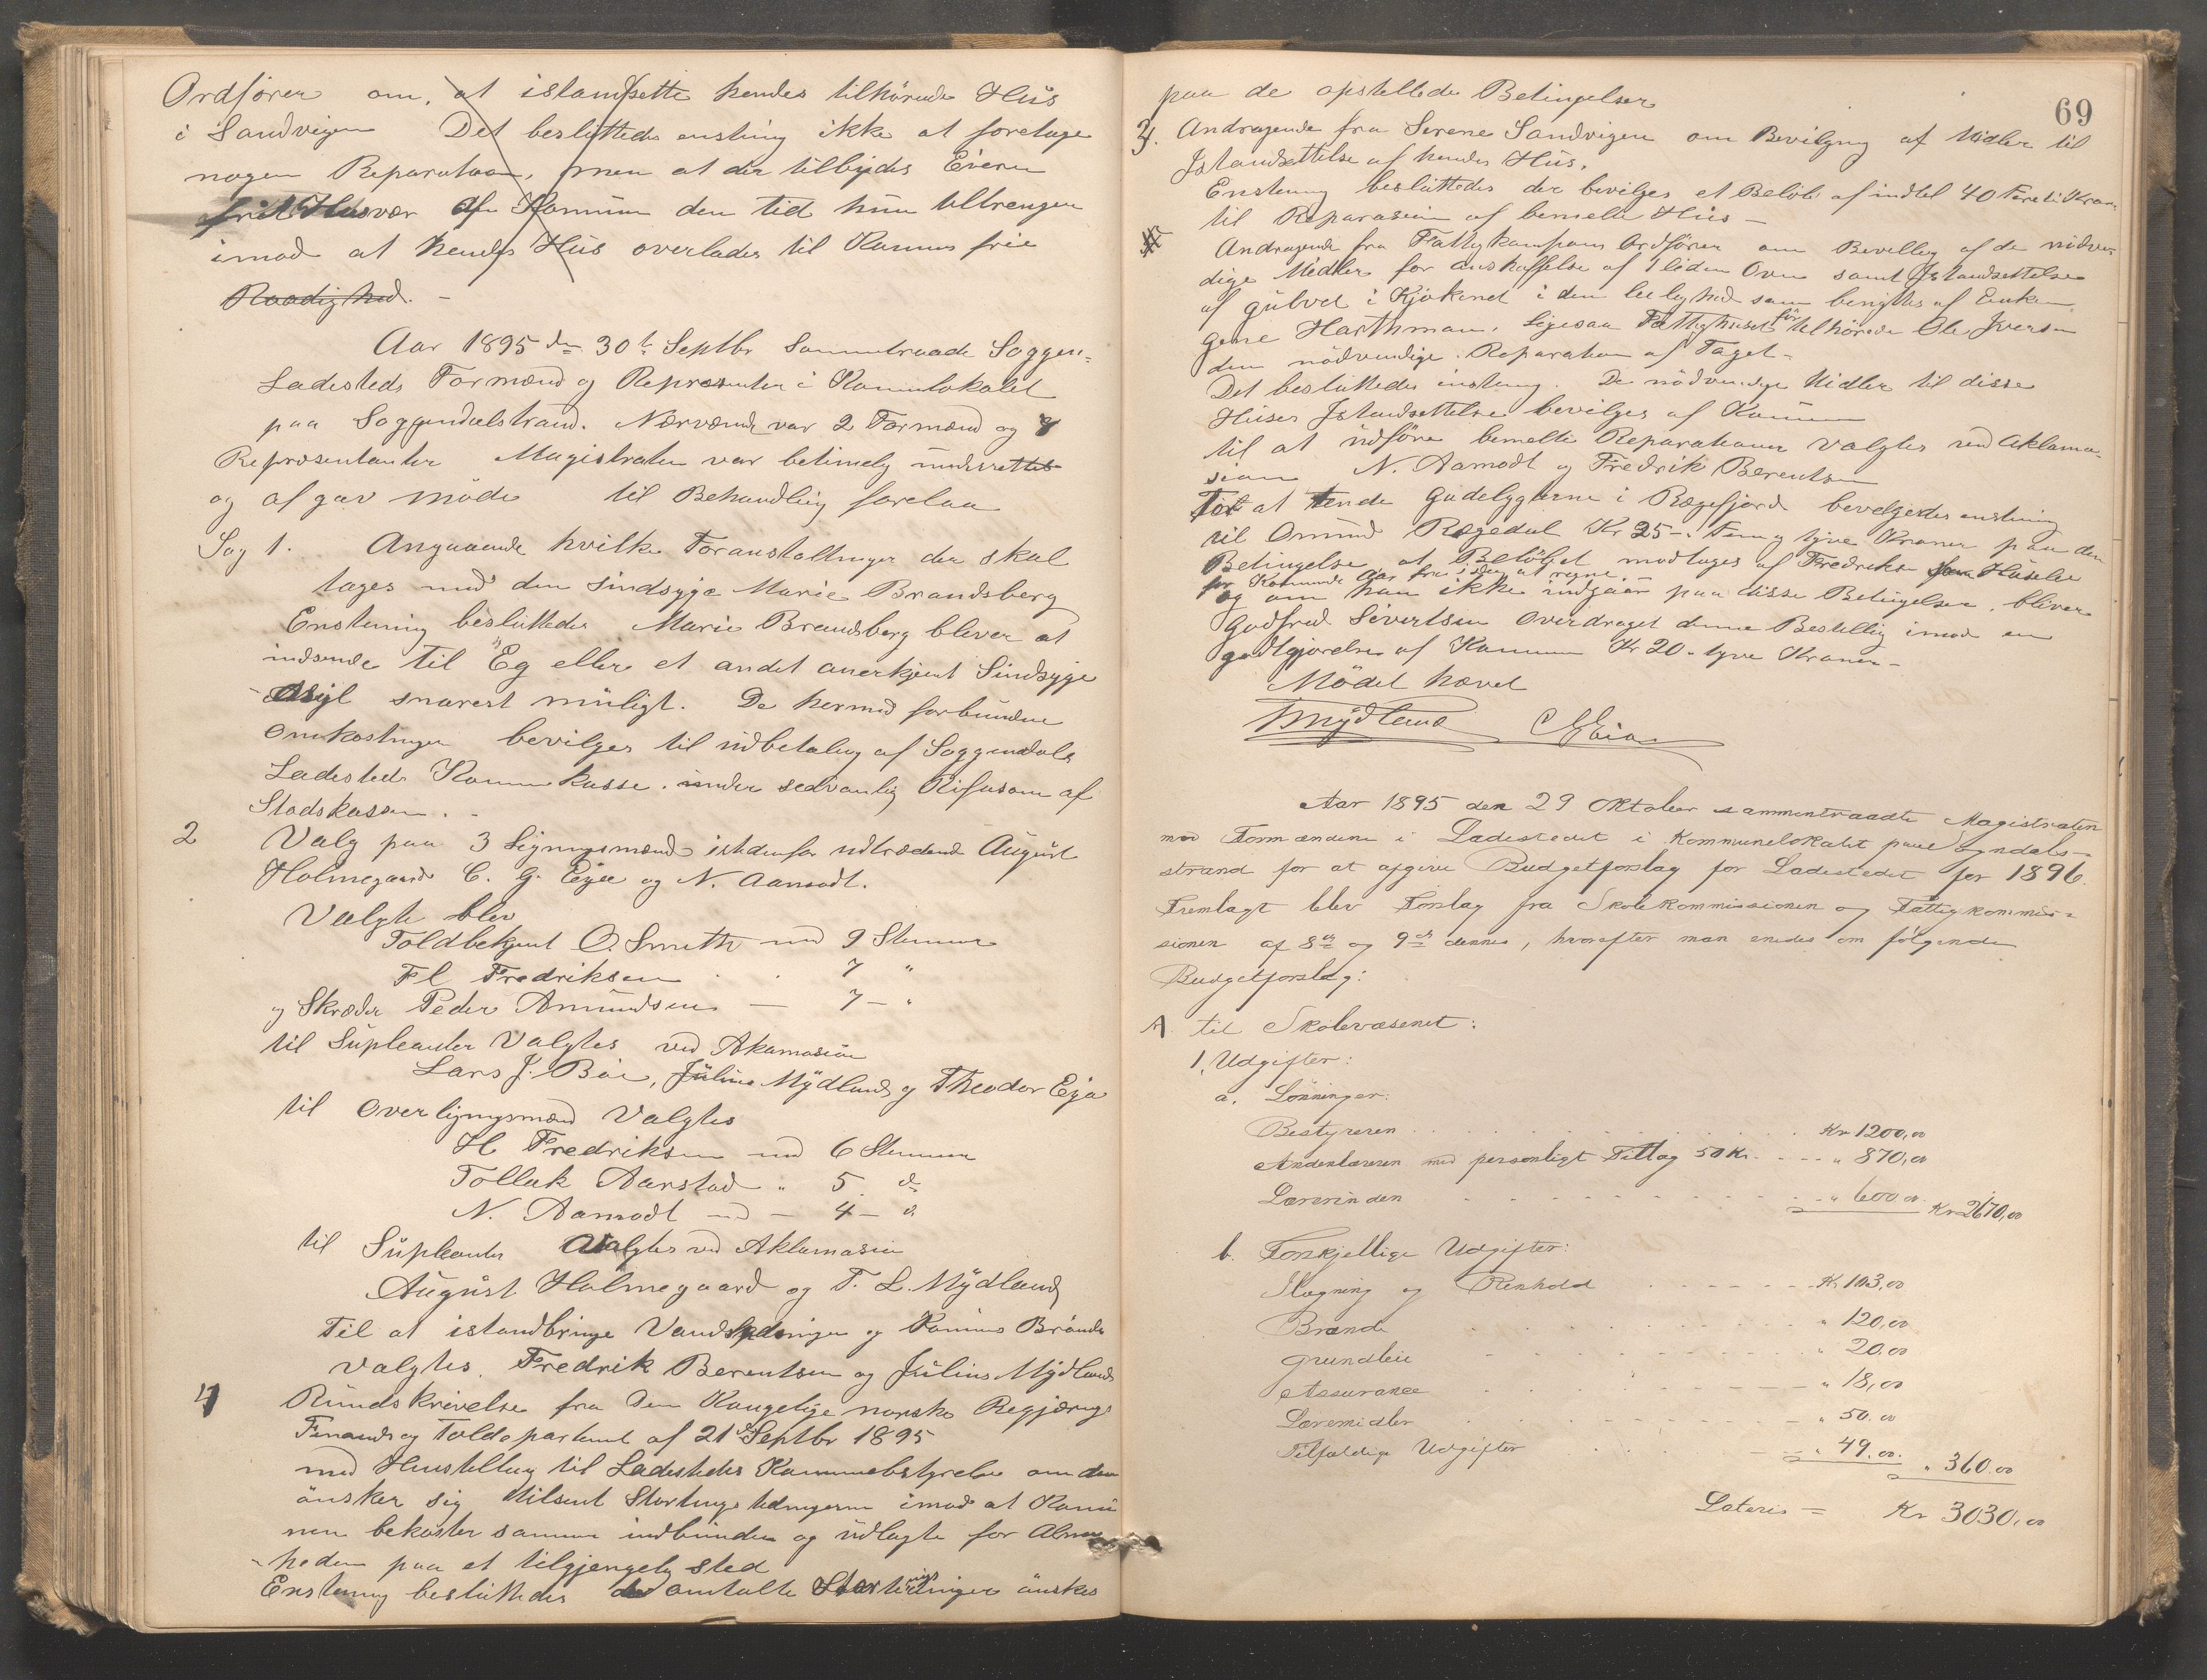 Ordfører om, at istandsette hendes tilhørende Hüs
i Sandvigen Det besluttedes enstemig ikke at foretage
nogen Reparation, men at der tilbydes Eieren
frit Husvær af Komunen den tid hün tiltrenger
imod at hendes Hüs overlades til Komunens frie
Raadighed. -
Aar 1895 den 30te Septbr sammentraade Soggen-
Ladesteds Formænd og Represententer i Komunelokalet
paa Soggendalstrand. Nærværende var 2 Formænd og 7
Representanter Magistraten var betimelig underrettet
og afgav møde til Behandling forelaa
Sag 1. Angaaende hvilke Foranstaltninger der skal
tages med den sindsyge Marie Brandsberg
Enstemig besluttedes Marie Brandsberg bliver at
indsende til Eg eller et andet anerkjent Sindsyge
-asyl snarest müligt. De hermed forbundne
Omkostninger bevilges til üdbetaling af Soggendals
Ladesteds Komunekasse. ünder sedvanlig Refusion af
Statskassen. -
2 Valg paa 3 Ligningsmænd istedenfor udtrædende August
Holmegaard C. G. Eger og N. Aamodt.
Valgte blev
Toldbetjent O. Smith med 9 Stemmer
Fl Fredriksen . . 7 "
og Skræder Peder Amündsen — 7 — "
til Süpleanter Valgtes ved Aklamasion
Lars J. Böe, Jülius Mÿdland og Theodor Eja
til Overligningsmænd Valgtes
H Fredriksen med 6 Stemmer
Tollak Aarstad " 5 do
N. Aamodt — 4 — do
til Süpleanter Valgtes ved Aklamasion
Aügüst Holmegaard og T. L. Mÿdland
Til at istandbringe Vandledningen og Komunens Brönde
valgtes. Fredrik Berentsen og Jülius Mÿdland
4 Rundskrivelse fra Den Kongelige norske Regjerings
Finands og Tolddepartement af 21de Septbr 1895
med Henstilling til Ladestedets Kommunebstyrelse om den
önsker sig tilsent Stortings tidningerne imod at Komü
nen bekoster samme indbunden og üdlagte for Almen
-heden paa et tilgjengelig sted
Enstemig beslüttedes de omtalte Stortingstidninger önskes
69
paa de opstellede Betingelser
3. Andragende fra Serene Sandvigen om Bevilgning af Midler til
Istandsettelse af hendes Hüs.
Enstemig beslüttedes der bevilges et Belöb af indtil 40 Förti Kroner
til Reparasion af bemelte Hüs —
Andragende fra Fattigkomisjons Ordförer om Bevilling af de nödven-
dige Midler for anskaffelse af 1 liden Ovn samt Istandsettelse
af gülvet i Kjökenet i den leilighed som benyttes af Enken
Gene Harthman. Ligesaa Fattighuset för tilhörende Ole Iversen
den nödvendige Reparation af Taget -
Det beslüttedes enstemig. De nödvendige Midler til disse
Hüses Istandsettelse bevilges af Komunen
til at üdföre bemelte Reparationer valgtes ved Aklama-
sion N. Aamodt og Fredrik Berentsen
For at tende Gadelygterne i Rægefjord bevelgedes enstemig
til Omünd Rægedal Kr 25 -: Fem og tyve Kroner paa den
Betingelse at Belöbet modtages af Fredrikke Hüselie
for Komunde Aar fra iden at regne
og om han ikke indgaar paa disse Betingelser, bliver
Godfred Sivertsen Overdraget denne Bestelling imod en
godtgjörelse af Komunen Kr 20 - tyve Kroner -
Mödet hævet
TMÿdland C G Eia
Aar 1895 den 29 Oktober sammentraadte Magistraten
med Formændene i Ladestedet i Kommunelokalet paa Sogndals-
strand for at afgive Budgetforslag for Ladestedet for 1896.
Fremlagt blev Forslag fra Skolekommissionen og Fattigkommis-
sionen af 8de og 9de dennes, hvorefter man enedes om følgende
Budgetforslag:
A til Skolevæsenet:
1. Udgifter:
a. Lønninger:
Bestyreren . . . . . Kr 1200,00
Andenlæreren med personligt Tillæg 50 Kr. . . . " 870,00
Lærerinden . . . . . " 600 00. Kr 2670,00
b. Forskjellige Udgifter:
Ilægning og Renhold . . . . Kr 103,00
Brænde . . . . . " 120,00
Grundleie . . . . . " 20.00
Assurance . . . . . " 18,00
Læremidler . . . . . " 50.00
Tilfældige Udgifter . . . . . " 49.00. " 360.00
Lateris = Kr 3030,00